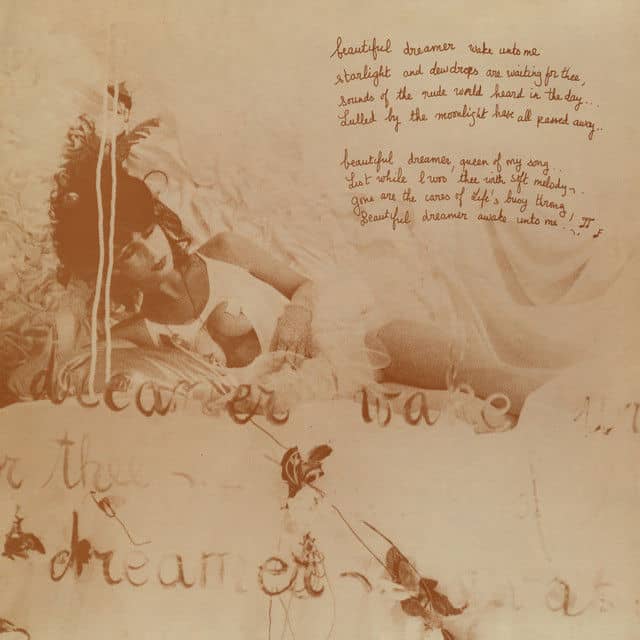 beautiful dreamer wake unto me
starlight and dewdrops are waiting for thee,
sounds of the rude world heard in the day...
Lulled by the moonlight have all passed away..
beautiful dreamer, queen of my song..
List while I woo thee with soft melody
gone are the cares of life's busy throng!
Beautiful dreamer awake unto me...
dreamer wake
r thee
dreamer